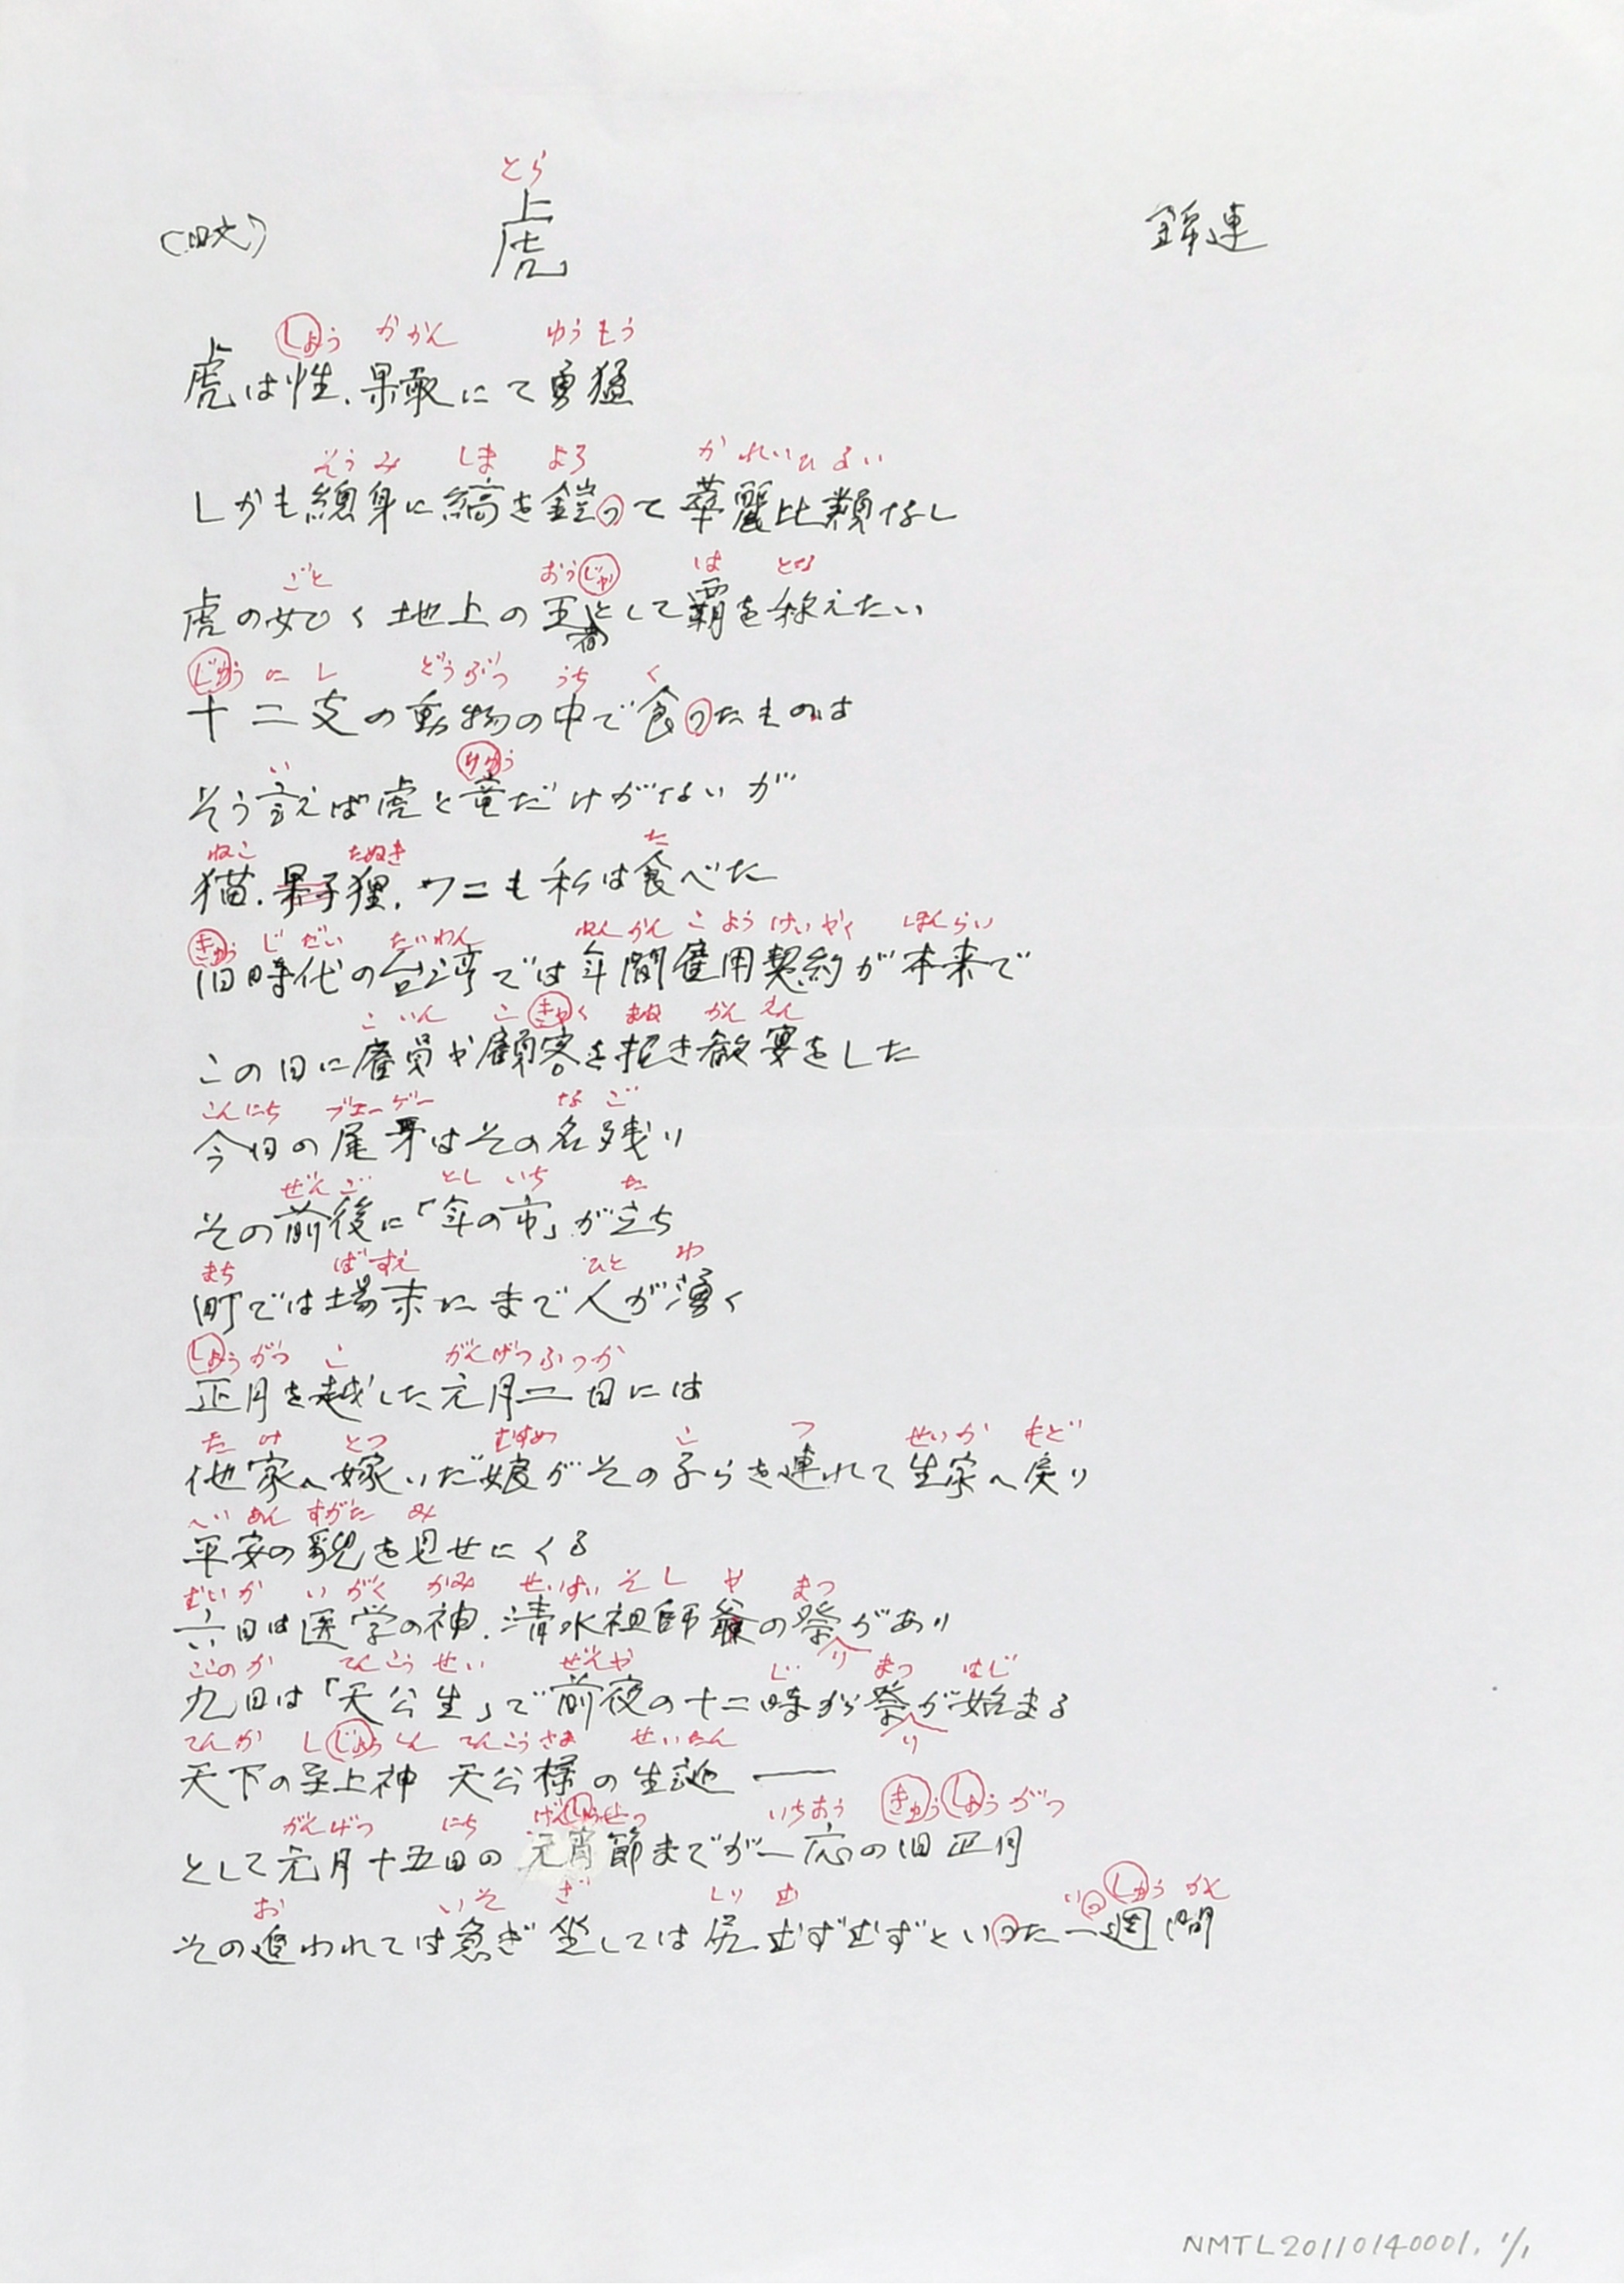 とら
(日文) 虎 錦連
しょう かかん ゆうもう
虎は性、果敢にて勇猛
そうみ しま よろ かれいひるい
しかも總身に縞を鎧って華麗比類なし
ごと おうじゃ は とな
虎の如く地上の王者として覇を称えたい
じゅうにし どうぶつ うち く
十二支の動物の中で食ったものは
い りゅう
そう言えば虎と竜だけがないが
ねこ たぬき た
猫、果子狸、ワニも私は食べた
きゅうじだい たいわん ねんかんこようけいやく ほんらい
旧時代の台湾では年間雇用契約が本来で
こいん こきゃく まね かんえん
この日に雇員や顧客を招き歓宴をした
こんにち ブエーゲー なご
今日の尾牙はその名残り
ぜんご とし いち た
その前後に「年の市」が立ち
まち ばすえ ひと わ
町では場末にまで人が湧く
しょうがつ こ がんげつふつか
正月を越した元月二日には
たけ とつ むすめ こ つ せいか もど
他家へ嫁いだ娘がその子らを連れて生家へ戻り
へいあん すがた み
平安の貌を見せにくる
むいか いがく かみ せいすい そし や まつ
六日は医学の神、清水祖師爺の祭りがあり
ここのか てんこうせい ぜんや じ まつ はじ
九日は「天公生」で前夜の十二時から祭りが始まる
てんか しじょうしん てんこうさま せいたん
天下の至上神 天公様の生誕 ──
がんげつ にち げんしょうせつ いちおう きゅうしょうがつ
として元月十五日の元宵節までが一応の旧正月
お いそ ざ しり む いっしゅうかん
その追われては急ぎ坐しては尻むずむずといった一週間
NMTL20110140001. 1/1